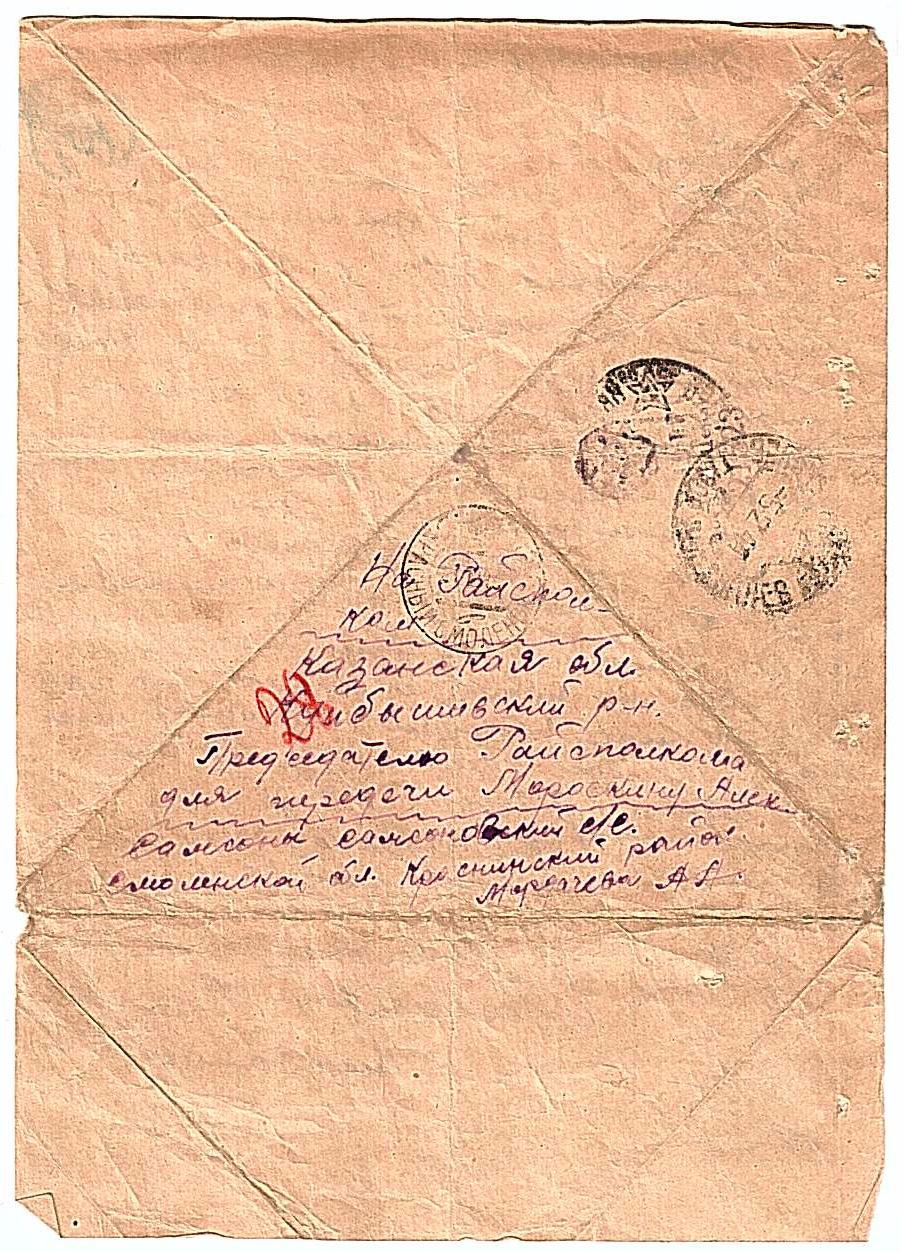 На Райспол-
ком
Казанская обл.
Куйбышевский р-н.
Председателю Райсполкома
для передачи Мороскину Алек.
Самсоны самсоновский с/с.
Смоленской обл. Краснинский район.
А А.
СМОЛЕН